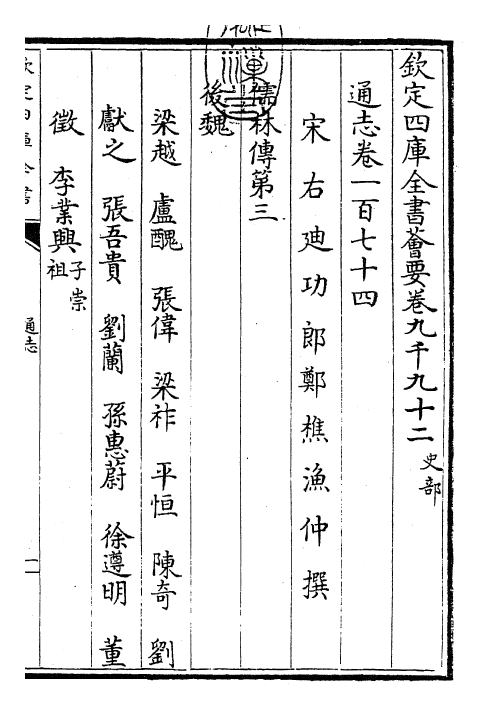 欽定四庫全書薈要卷九千九十二 史部
通志卷一百七十四
宋右迪功郎鄭樵漁仲撰
儒林傳第三
後魏
梁越 盧醜 張偉 梁祚 平恒 陳奇 劉
獻之 張吾貴 劉蘭 孫惠蔚 徐遵明 董
徵 李業興子崇祖
通志
一